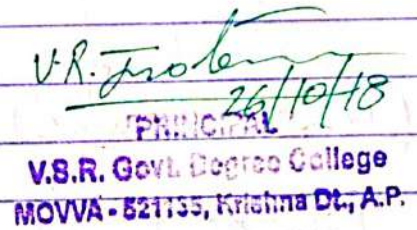 V.R.
26/10/18
PRINCIPAL
V.S.R. Govt. Degree College
MOVVA - 521135, Krishna Dt., A.P.